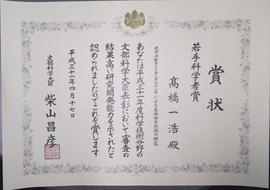 賞状
若手科学者賞
高橋一浩殿
あなたは平成三十一年度科学技術分野の
文部科学大臣表彰において審査の
結果高い研究開発能力を示されたと
認められましたのでこれを賞します
平成三十一年四月十七日
文部科学大臣
柴山昌彦